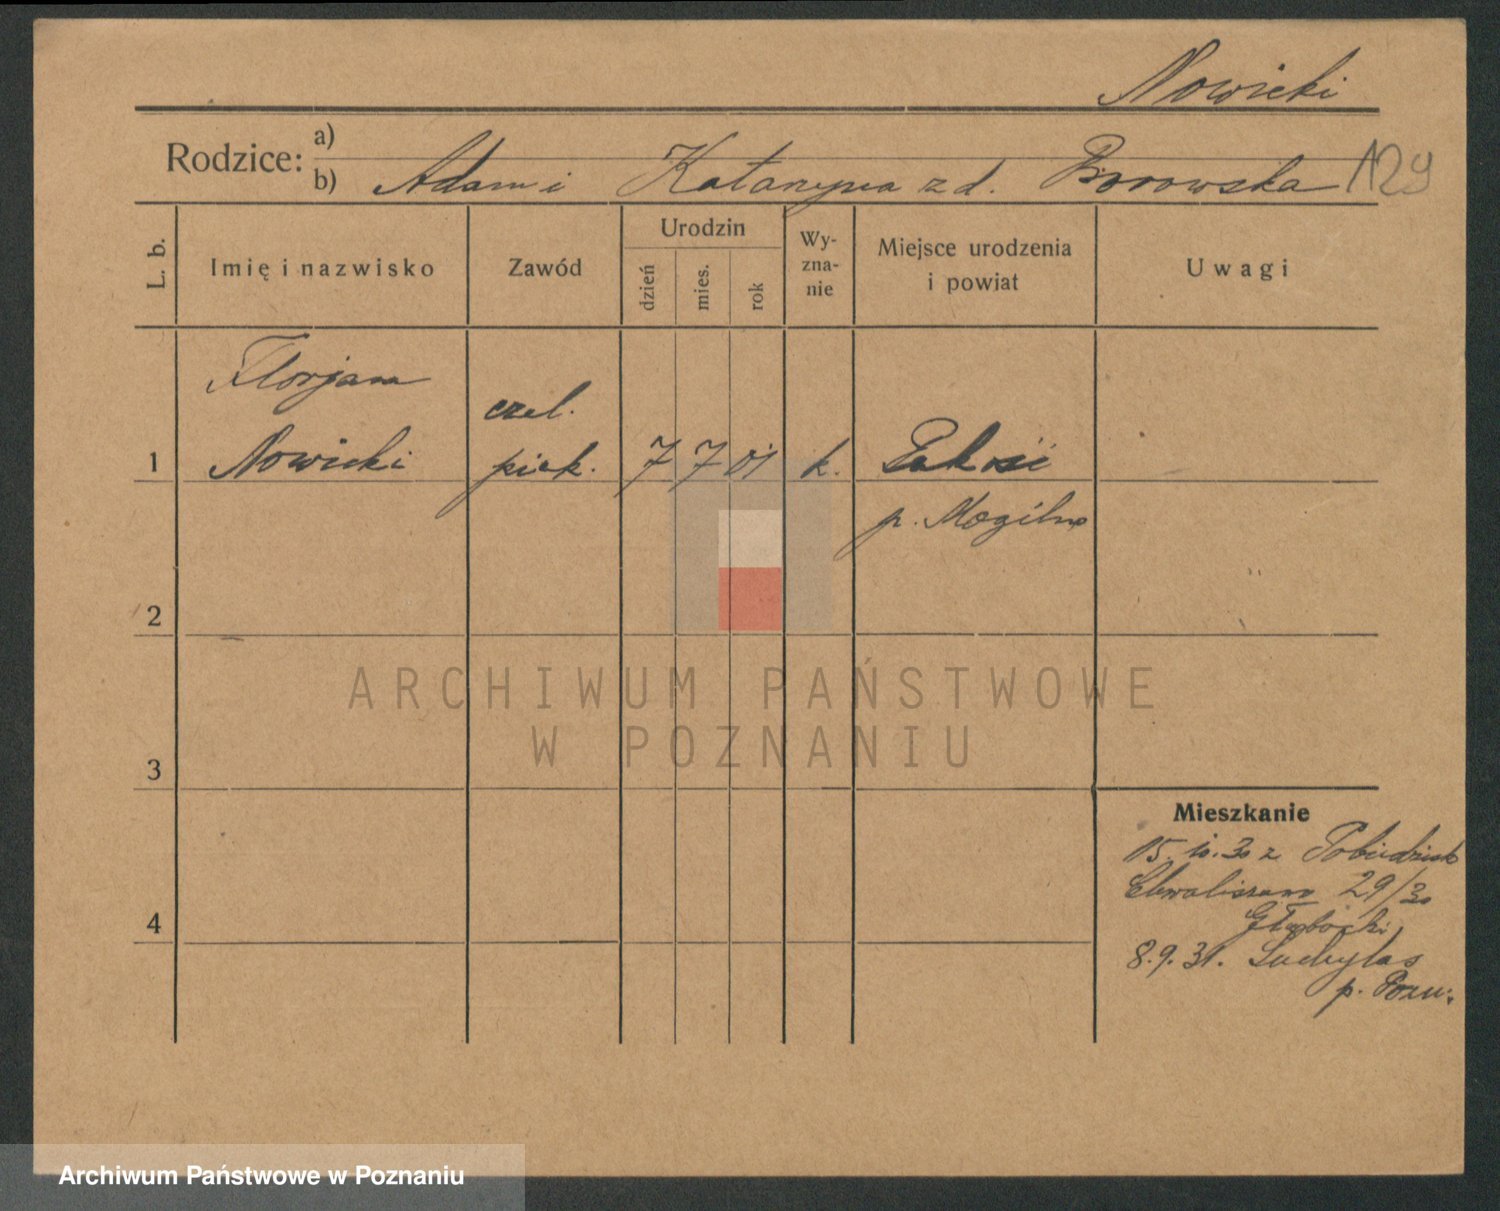 Nowicki
Rodzice: a)
b) Adam i Katarzyna z d. Borowska 129
L. b.
Imię i nazwisko
Zawód
Urodzin
dzień
mies.
rok
Wy-
zna-
nie
Miejsce urodzenia
i powiat
Uwagi
Florjan
czel.
1 Nowicki piek. 7 7 01 k. Pakość
p. Mogilno
2
ARCHIWUM PAŃSTWOWE
W POZNANIU
3
Mieszkanie
15.10.30 z Pobiedzisk
Chwaliszewo 29/30
Głębocki
4
8.9.31. Suchylas
p. Pozn.
Archiwum Państwowe w Poznaniu